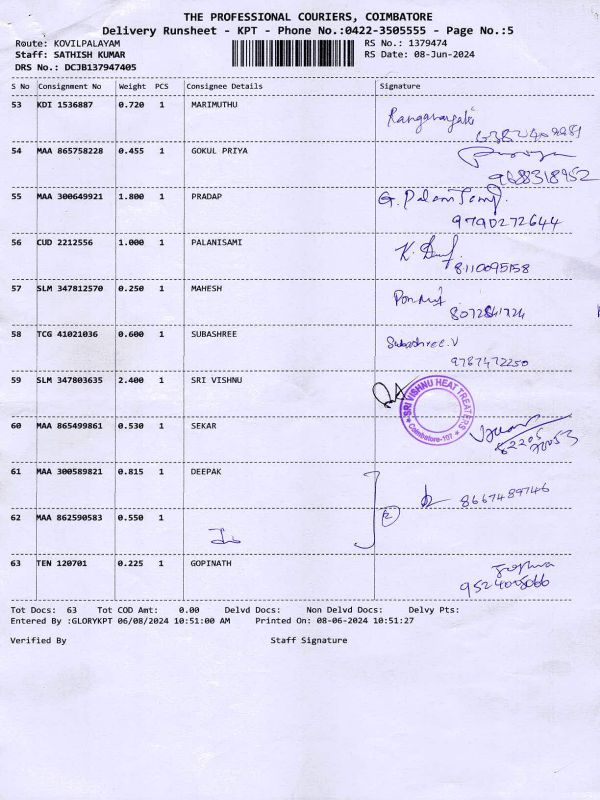 THE PROFESSIONAL COURIERS, COIMBATORE
Delivery Runsheet - KPT - Phone No.:0422-3505555 - Page No.:5
Route: KOVILPALAYAM RS No.: 1379474
Staff: SATHISH KUMAR RS Date: 08-Jun-2024
DRS No.: DCJB137947405
S No Consignment No Weight PCS Consignee Details Signature
53 KDI 1536887 0.720 1 MARIMUTHU
54 MAA 865758228 0.455 1 GOKUL PRIYA
9688318952
55 MAA 300649921 1.800 1 PRADAP G.
9790272644
56 CUD 2212556 1.000 1 PALANISAMI K.
8110095158
57 SLM 347812570 0.250 1 MAHESH
58 TCG 41021036 0.600 1 SUBASHREE Subashree.V
9787472250
59 SLM 347803635 2.400 1 SRI VISHNU
SRI VISHNU HEAT TREATERS
Coimbatore-107
60 MAA 865499861 0.530 1 SEKAR
61 MAA 300589821 0.815 1 DEEPAK
8667489746
62 MAA 862590583 0.550 1
63 TEN 120701 0.225 1 GOPINATH
Tot Docs: 63 Tot COD Amt: 0.00 Delvd Docs: Non Delvd Docs: Delvy Pts:
Entered By :GLORYKPT 06/08/2024 10:51:00 AM Printed On: 08-06-2024 10:51:27
Verified By Staff Signature